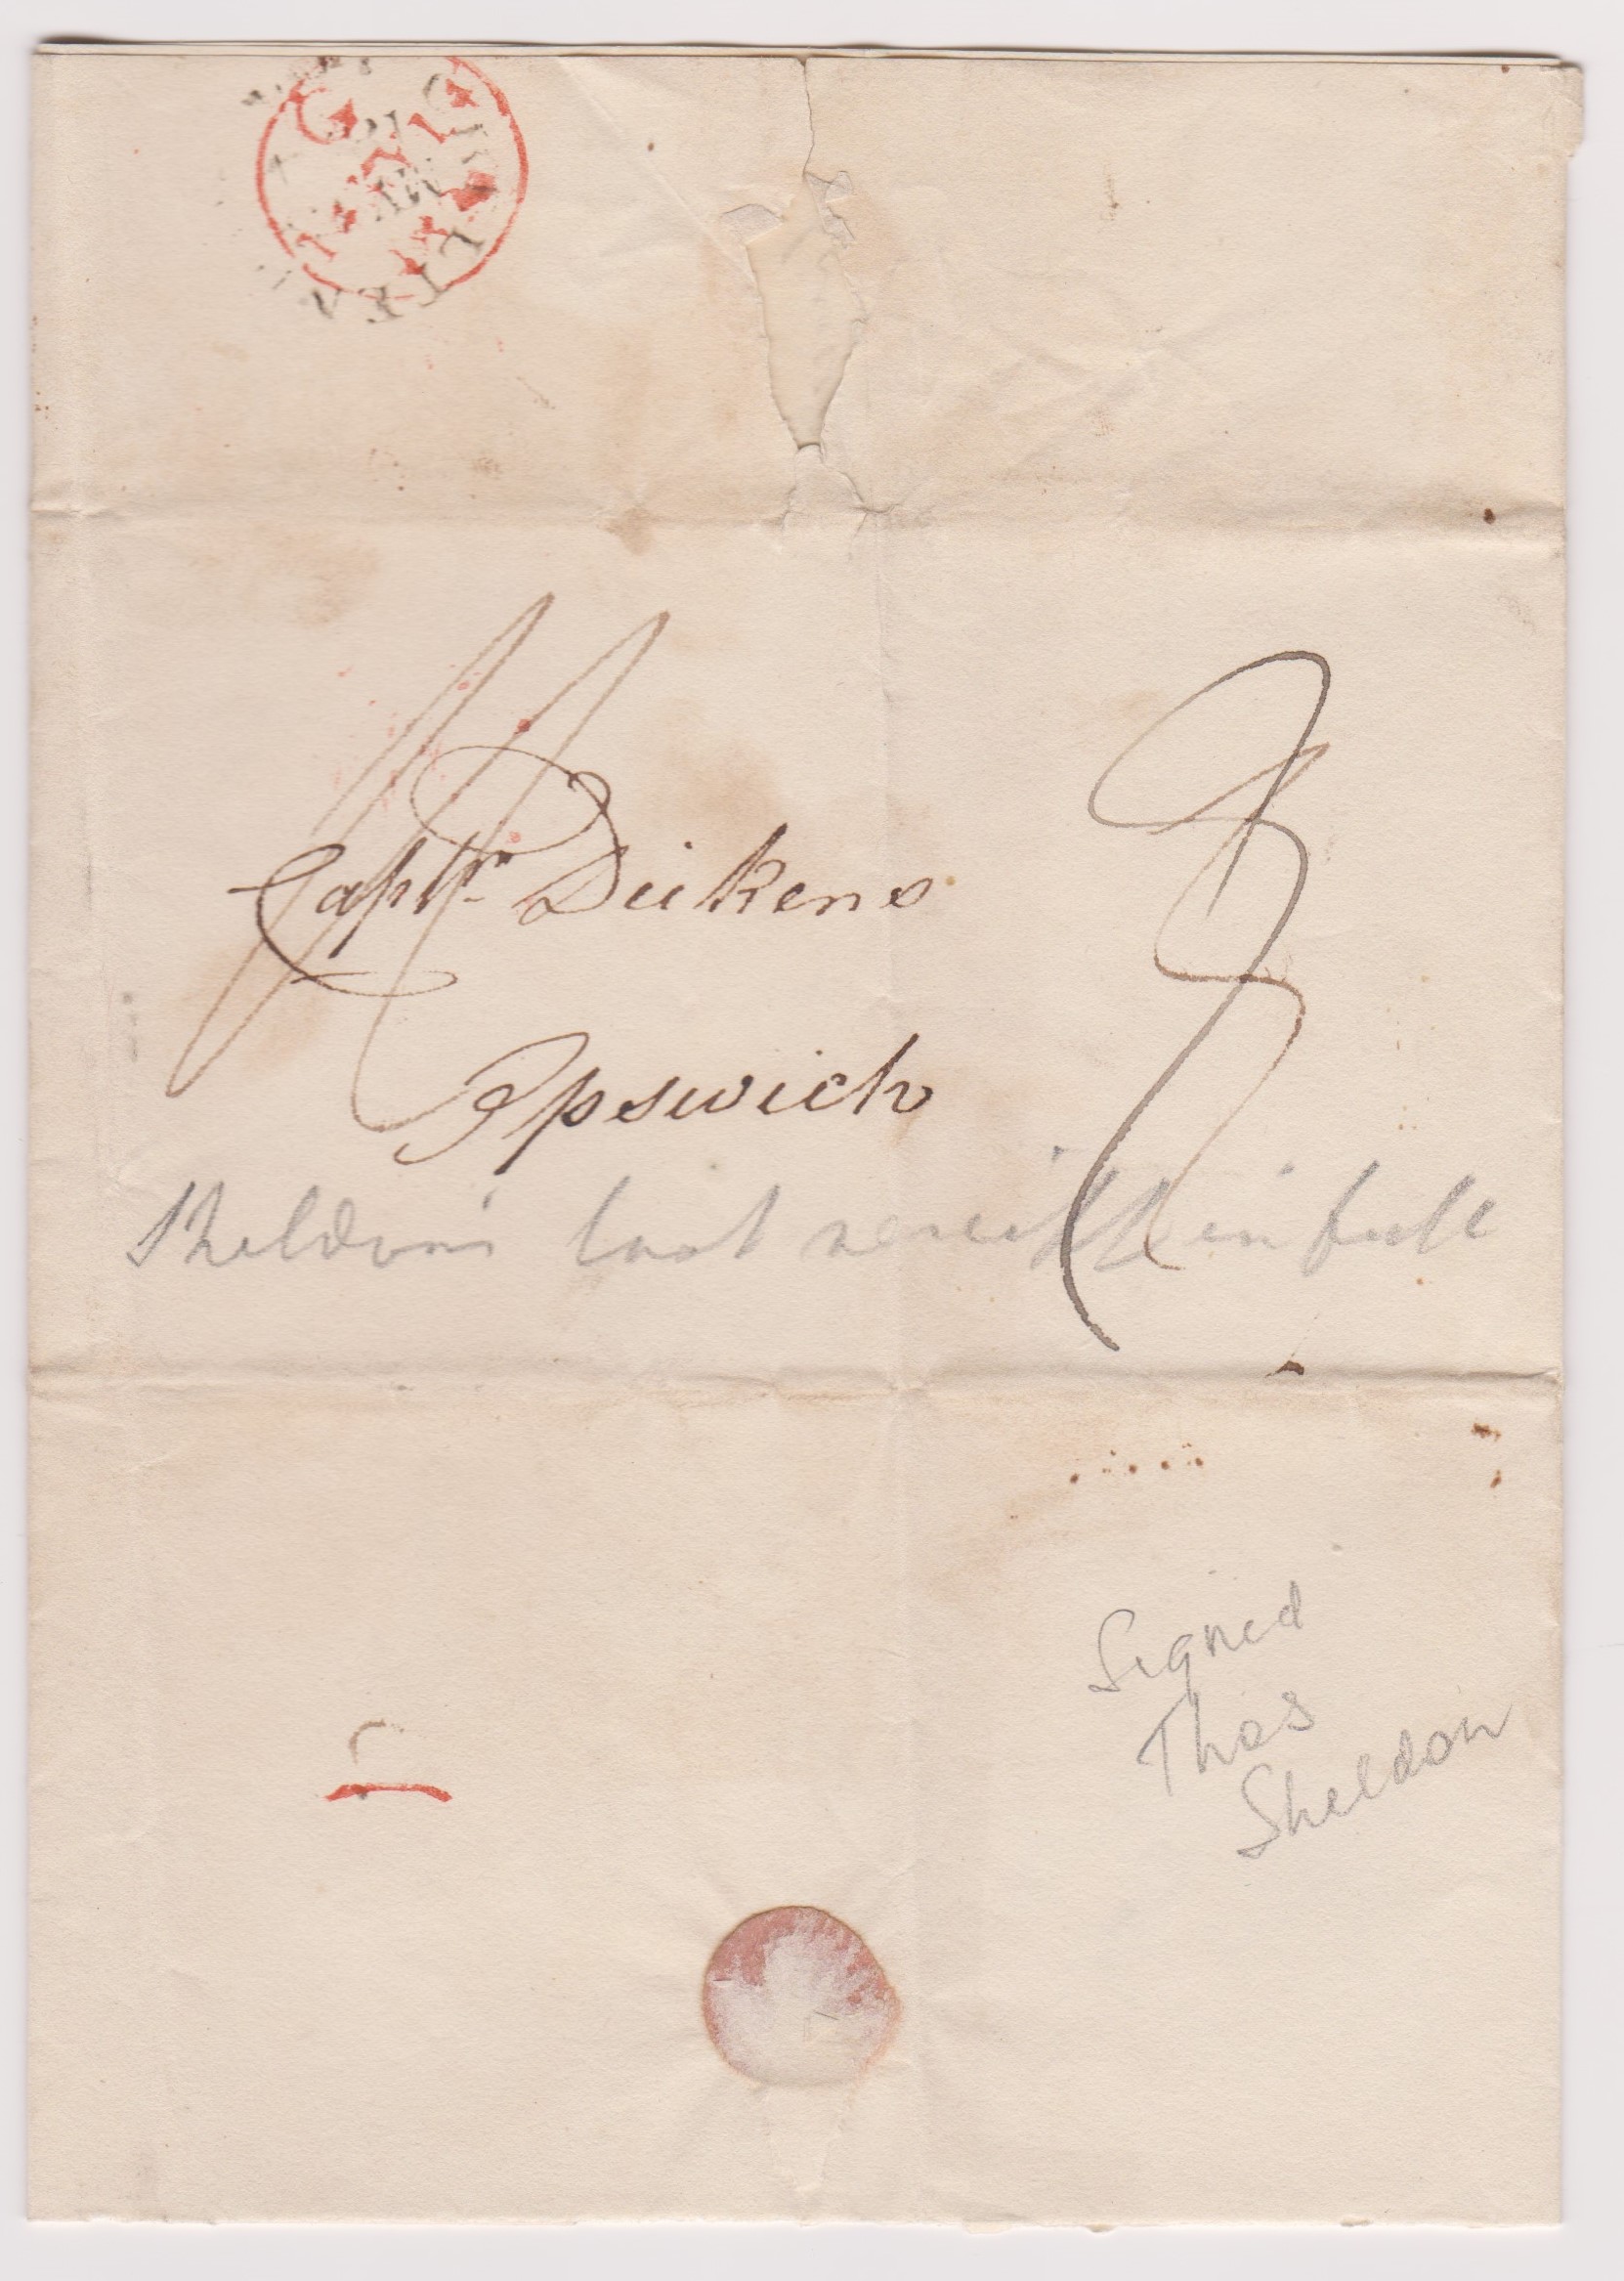 Captn. Dickens
Ipswich
Sheldon's last receipt in full
Signed
Thos
Sheldon